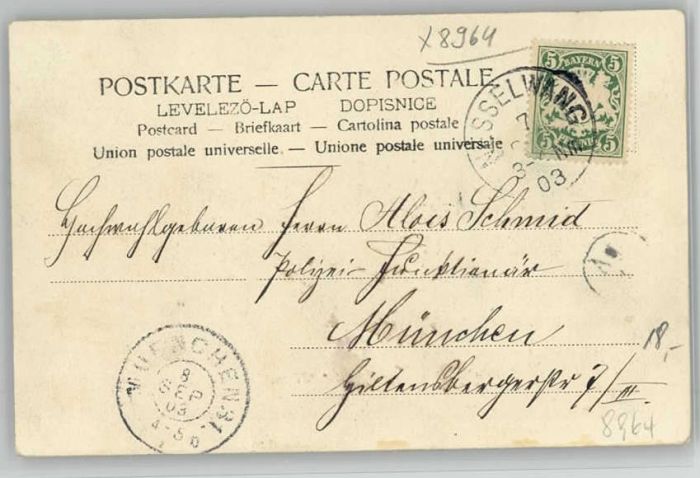 x8964
5 5
BAYERN
5 5
POSTKARTE — CARTE POSTALE
LEVELEZŐ-LAP DOPISNICE
Postcard — Briefkaart — Cartolina postale
Union postale universelle. — Unione postale universale
NESSELWANG
7
03
Hochwohlgeboren Herrn Alois Schmid
Polizei-Funktionär
München
Hiltensbergerstr 7/III.
MUENCHEN 31.
8
SEP
03
4-5
18,-
8964